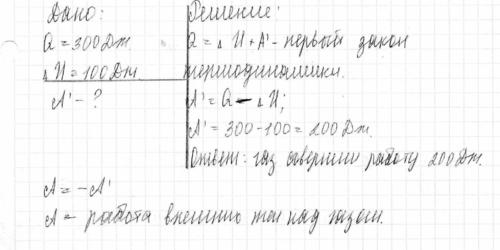 Дано:
Q = 300 Дж.
Δ U = 100 Дж.
A' - ?
Решение:
Q = Δ U + A' - первый закон
термодинамики.
A' = Q - Δ U;
A' = 300 - 100 = 200 Дж.
Ответ: газ совершил работу 200 Дж.
A = - A'
A - работа внешних тел над газом.